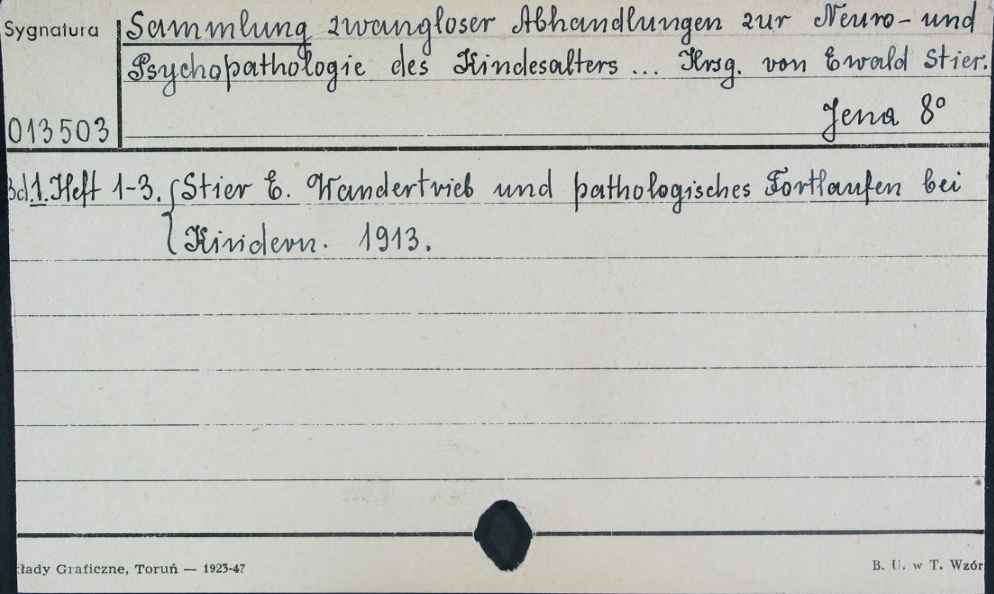 Sygnatura
Sammlung zwangloser Abhandlungen zur Neuro- und
Psychopathologie des Kindesalters ... Hrsg. von Ewald Stier.
Jena 8°
013503
Bd.1. Heft 1-3. {Stier E. Wandertrieb und pathologisches Fortlaufen bei
Kindern. 1913.
kłady Graficzne, Toruń — 1923-47
B. U. w T. Wzór